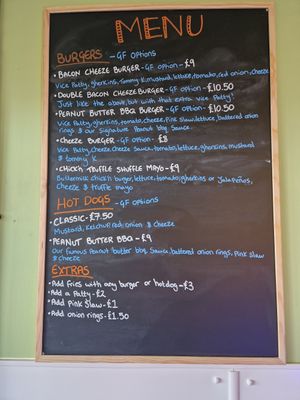 MENU
BURGERS - GF options
• BACON CHEEZE BURGER - GF option - £9
Vice Patty, gherkins, Tommy K, mustard, lettuce, tomato, red onion, cheeze
• DOUBLE BACON CHEEZE BURGER - GF option - £10.50
Just like the above, but with that extra vice Patty!
• PEANUT BUTTER BBQ BURGER - GF option - £10.50
Vice Patty, gherkins, tomato, cheeze, Pink slaw, lettuce, battered onion
rings & our signature Peanut bbq Sauce.
• Cheeze BURGER - GF option - £8
Vice Patty, Cheeze, Cheeze Sauce, tomato, lettuce, gherkins, mustard
& tommy K
• CHICK'N TRUFFLE SHUFFLE MAYO - £9
Buttermilk Chick'n burger, lettuce, tomato, gherkins or Jalapeños,
Cheeze & truffle mayo
HOT DOGS - GF options
• CLASSIC - £7.50
Mustard, Ketchup, red onion & Cheeze
• PEANUT BUTTER BBQ - £9
Our famous Peanut butter bbq Sauce, battered onion rings, Pink slaw
& cheeze
EXTRAS
• Add fries with any burger or hotdog - £3
• Add a Patty - £2
• Add Pink Slaw - £1
• Add onion rings - £1.50